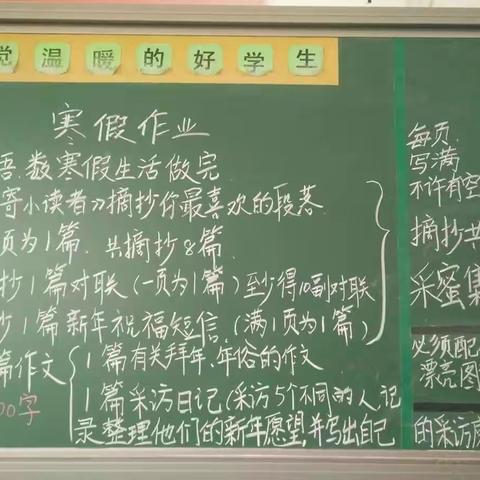 觉温暖的好学生
寒假作业
语.数寒假生活做完
寄小读者》摘抄你最喜欢的段落.
页为1篇.共摘抄8篇.
抄1篇对联(一页为1篇)至少得10副对联
1篇新年祝福短信.(满1页为1篇)
篇作文
00字
1篇有关拜年、年俗的作文
1篇采访日记(采访5个不同的人,记
录整理他们的新年愿望,并写出自己
每页.
写满
不许有空
摘抄共
采蜜集
必须配
漂亮图
的采访